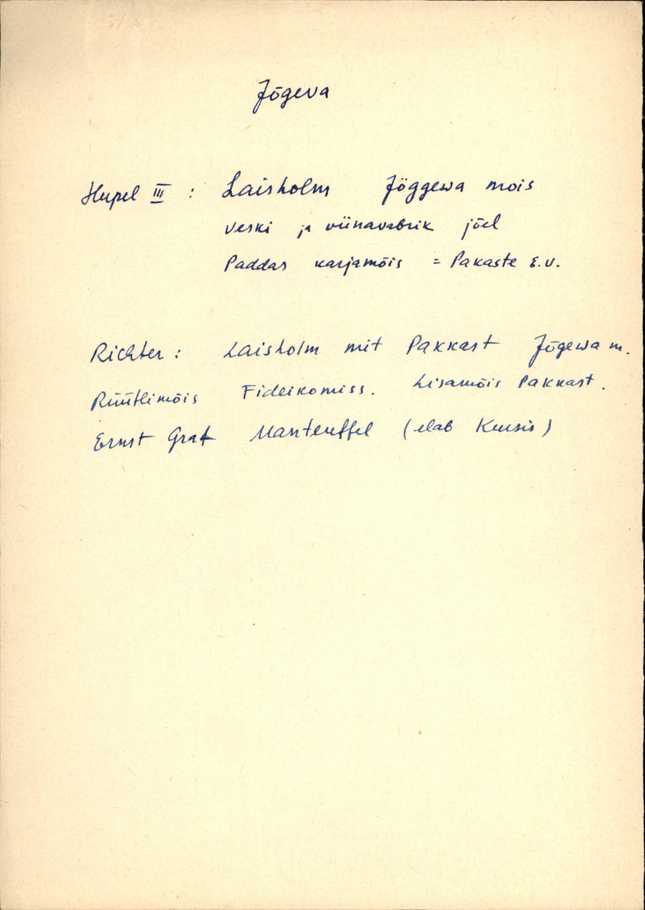 Jõgeva
Hupel III : Laisholm Jöggewa mois
veski ja viinavabrik jõel
Paddas karjamõis = Pakaste E.V.
Richter : Laisholm mit Pakkast Jõgewa m.
Rüütlimõis Fideikomiss. Lisamõis Pakkast.
Ernst Graf Manteuffel (elab Kursis)